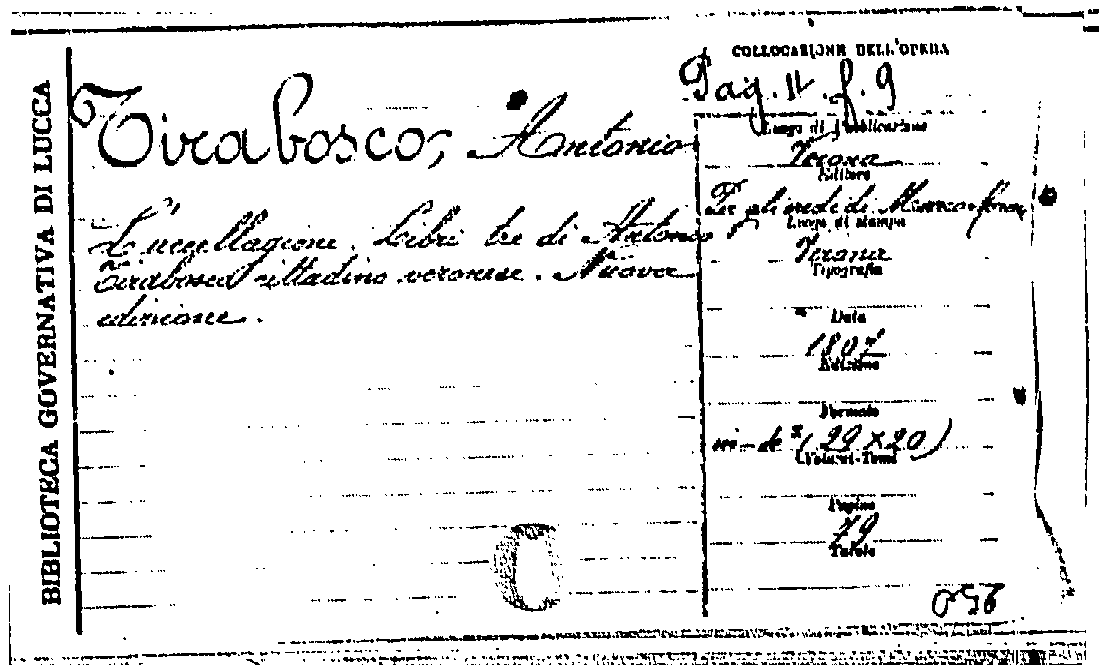 BIBLIOTECA GOVERNATIVA DI LUCCA
COLLOCAZIONE DELL'OPERA
Pag. II. f. 9
Tirabosco, Antonio
L'uccellagione. Libri tre di Antonio
Tirabosco cittadino veronese. Nuova
edizione.
Luogo di Pubblicazione
Verona
Editore
Per gli eredi di Marco
Luogo di stampa
Verona
Tipografia
Data
1807
Edizione
Formato
in-4° (29 × 20)
Volumi-Tomi
Pagine
79
Tavole
C